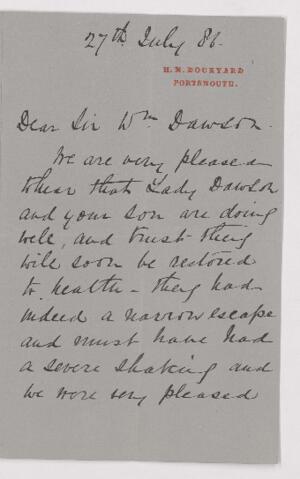 27th July 86.
H. M. DOCKYARD
PORTSMOUTH.
Dear Sir Wm Dawson.
We are very pleased
to hear that Lady Dawson
and your son are doing
well, and trust they
will soon be restored
to health - they had
indeed a narrow escape
and must have had
a severe shaking and
we were very pleased